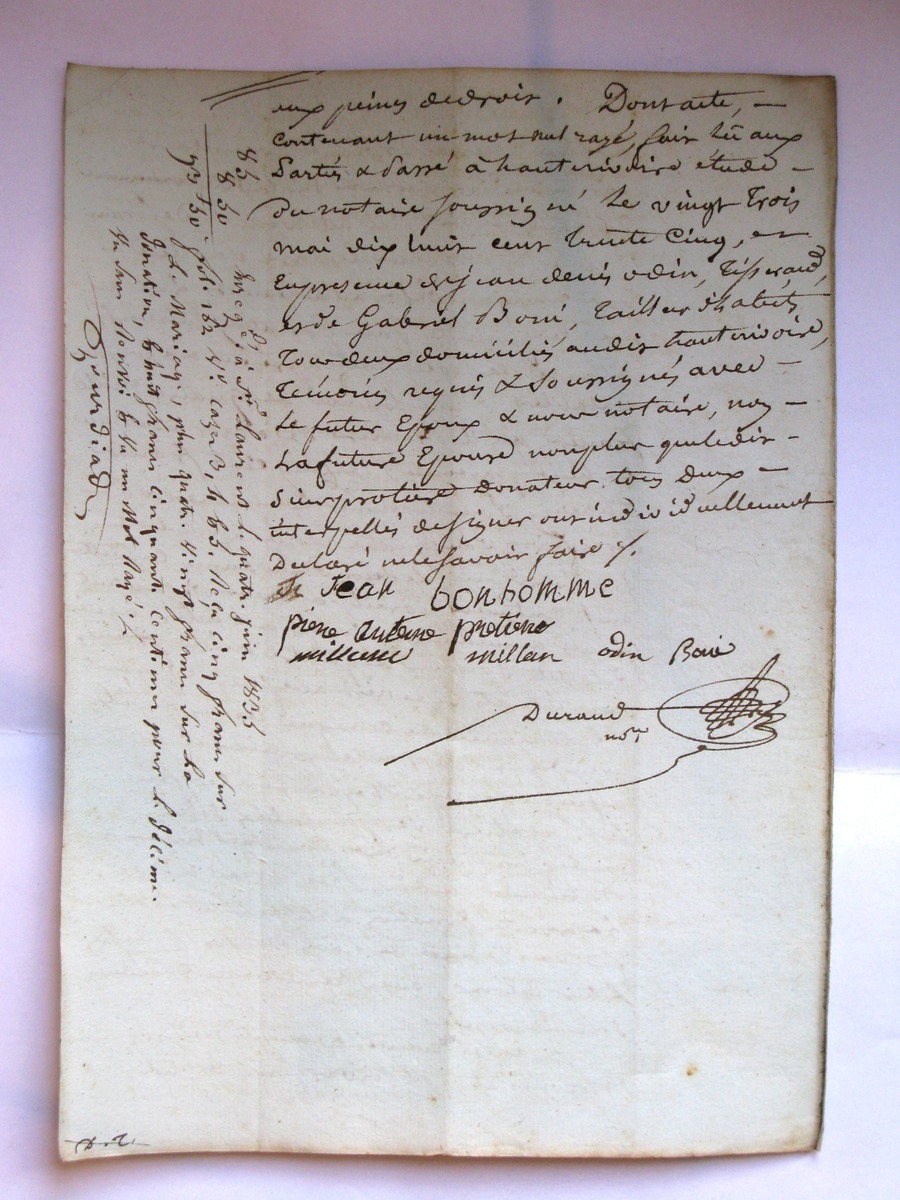 aux peines de droit. Dont acte, —
contenant un mot nul rayé, fait lu aux
parties & passé à hauterivoire étude —
du notaire soussigné le vingt trois
mai dix huit cent trente cinq, en
en presence de jean denis odin, tisserand,
et de Gabriel Boué, Tailleur d'habits,
tous deux domiciliés audit hauterivoire,
témoins requis & soussignés avec —
le futur Epoux & nous notaire, non —
la future Epouse non plus que ledit —
sieur protière donateur tous deux —
interpellés de signer ont individuellement
déclaré ne le savoir faire ./.
Jean bonhomme
piere antoine protiere
millan odin Boué
Durand
nore
85
8 50
93 50
Enregé à St Laurent le quatre juin 1835
fol. 182 Vo case 3, 4 & 5. Reçu cinq francs sur
le Mariage, plus quatre vingt francs sur la
donation, & huit francs cinquante centimes pour le décime.
un mot Rayé